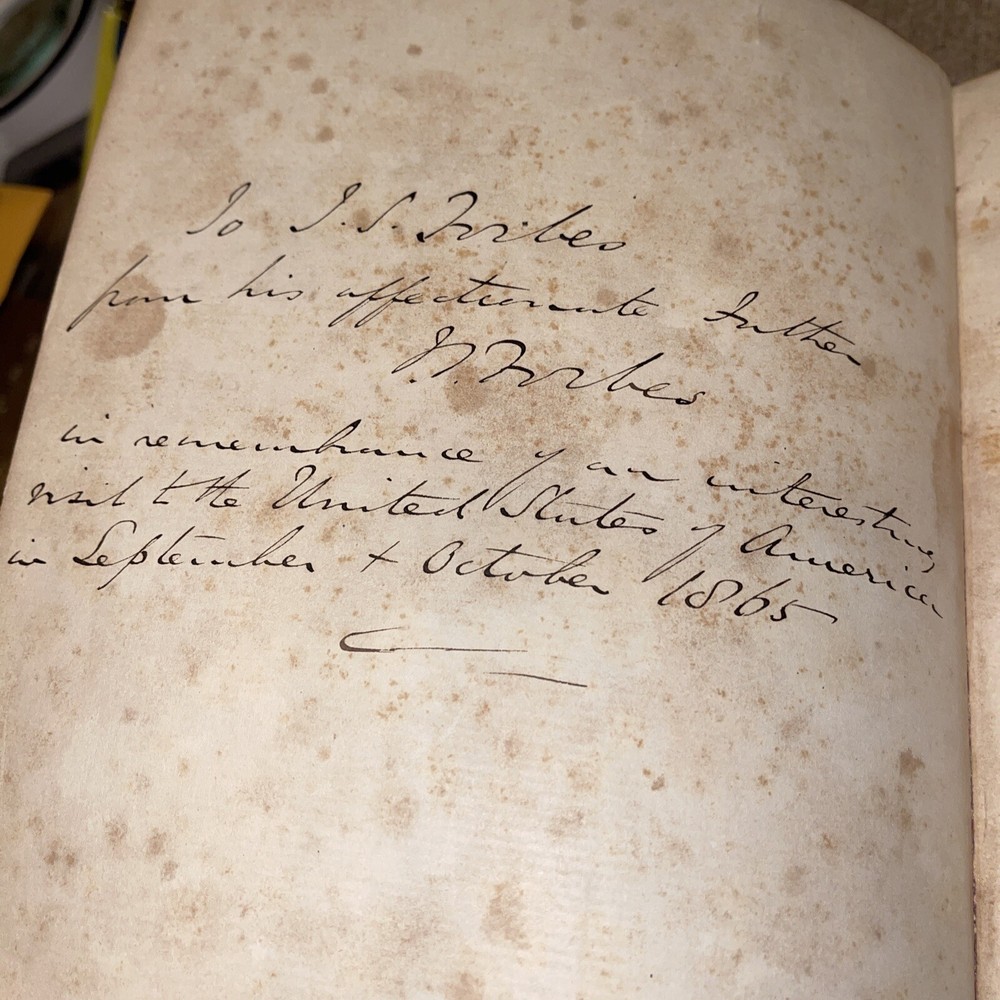 To J. S. Forbes
from his affectionate Father
W. Forbes
in remembrance of an interesting
visit to the United States of America
in September + October 1865